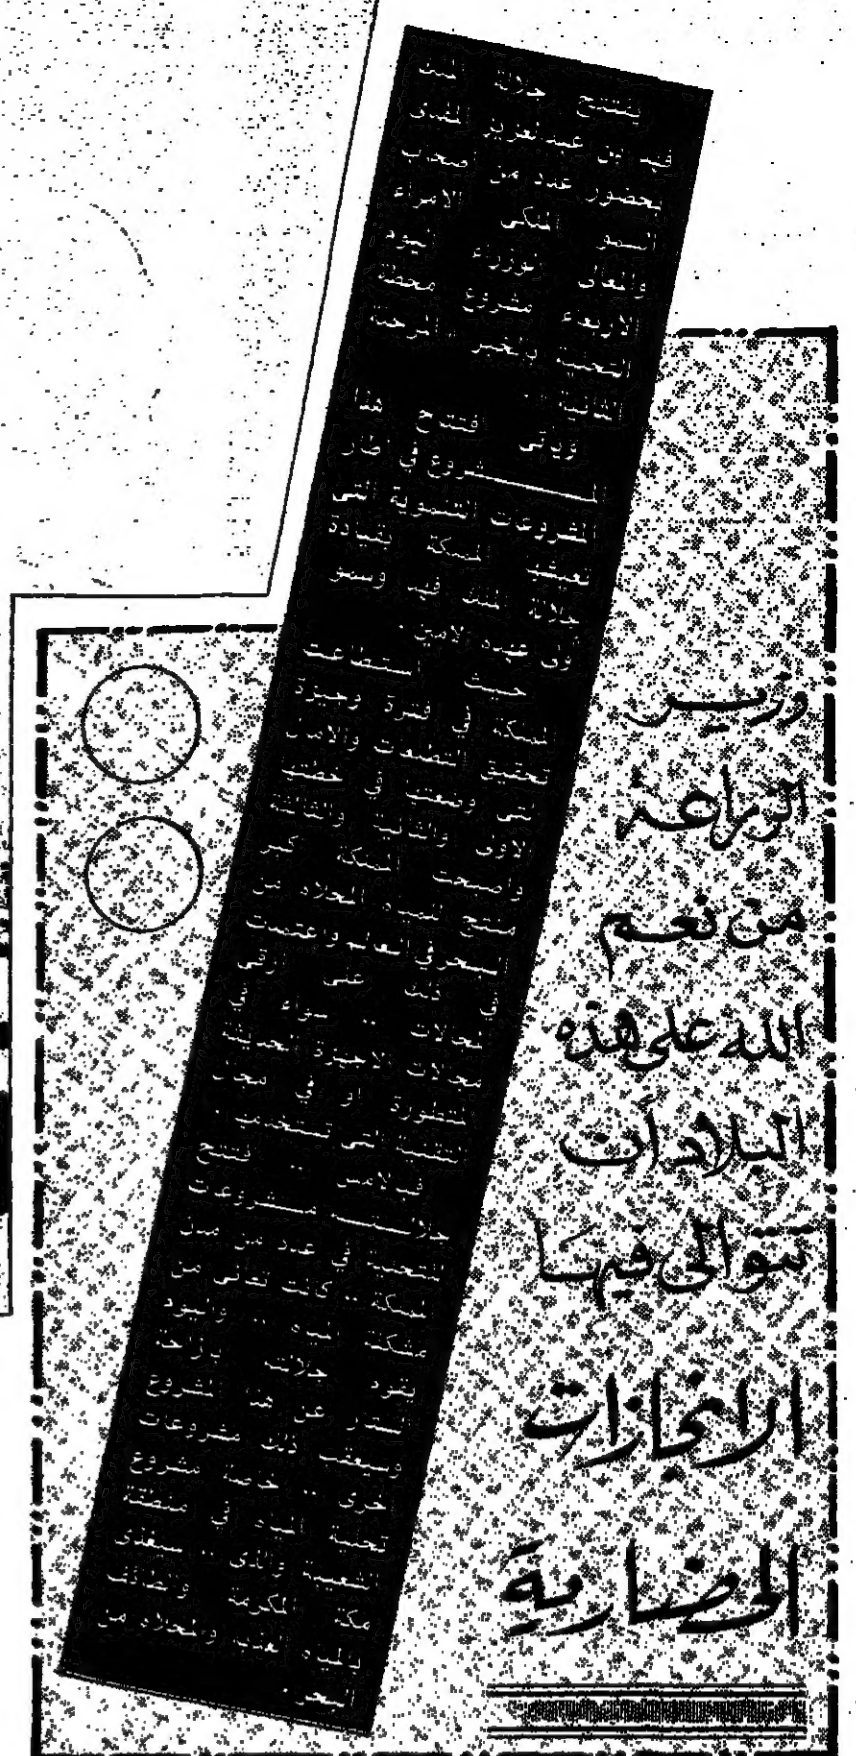 يفتتح جلالة الملك
فهد بن عبدالعزيز المفدى
بحضور عدد من اصحاب
السمو الملكى الامراء
والمعالى الوزراء اليوم
الاربعاء مشروع محطة
التحلية بالخبر المرحلة
الثانية ..
ويأتى افتتاح هذا
المــــــشروع في اطار
المشروعات التنموية التى
تعيشها المملكة بقيادة
جلالة الملك فهد وسمو
ولى عهده الامين .
حيث استطاعت
المملكة في فترة وجيزة
تحقيق التطلعات والامال
التى وضعتها في خططها
الاولى والثانية والثالثة
واصبحت المملكة اكبر
منتج للمياه المحلاه من
البحر في العالم واعتمدت
في ذلك على ارقى
المجالات .. سواء في
مجالات الاجهزة الحديثة
المتطورة او في مجال
التقنية التى تستخدمها .
فبالامس .. افتتح
جلالــتــه مــشروعات
للتحلية في عدد من مدن
المملكة .. كانت تعانى من
مشكلة المياه .. واليوم
يقوم جلالته بازاحة
الستار عن هذا المشروع
وسيعقب ذلك مشروعات
اخرى .. خاصة مشروع
تحلية المياه في منطقة
الشعيبة والذى .. ستغذى
مكة المكرمة والطائف
بالمياه العذبة والمحلاه من
البحر .
وزيــر
الزراعة
من نعــم
الله على هذه
البلاد أن
تتوالى فيهــا
الانجازات
الحضارية